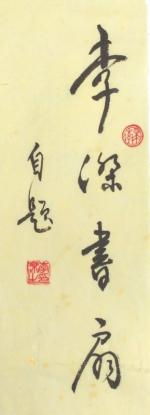 李傑書扇
自題